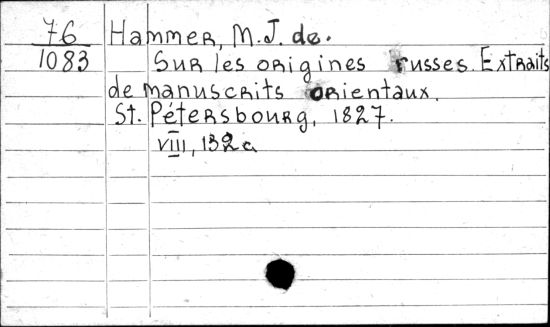 76 Hammer, M.J. de.
1083 Sur les origines russes. Extraits
de manuscrits orientaux.
St. Pétersbourg, 1827.
VIII, 132 c